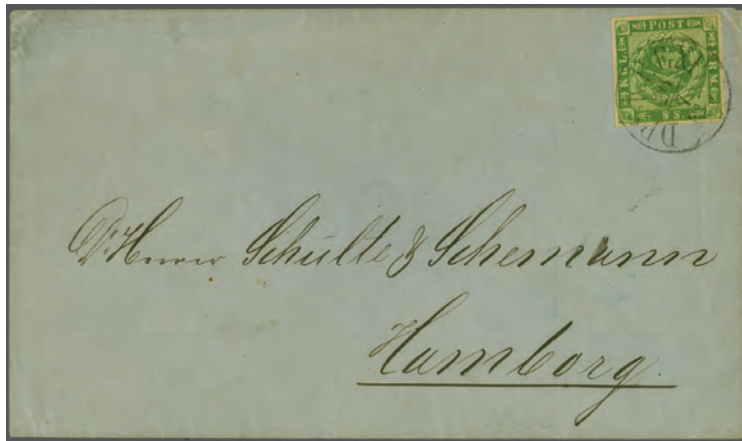 POST
KGL
FRM
8 S.
Herrer Schulte & Schemann
Hamborg.